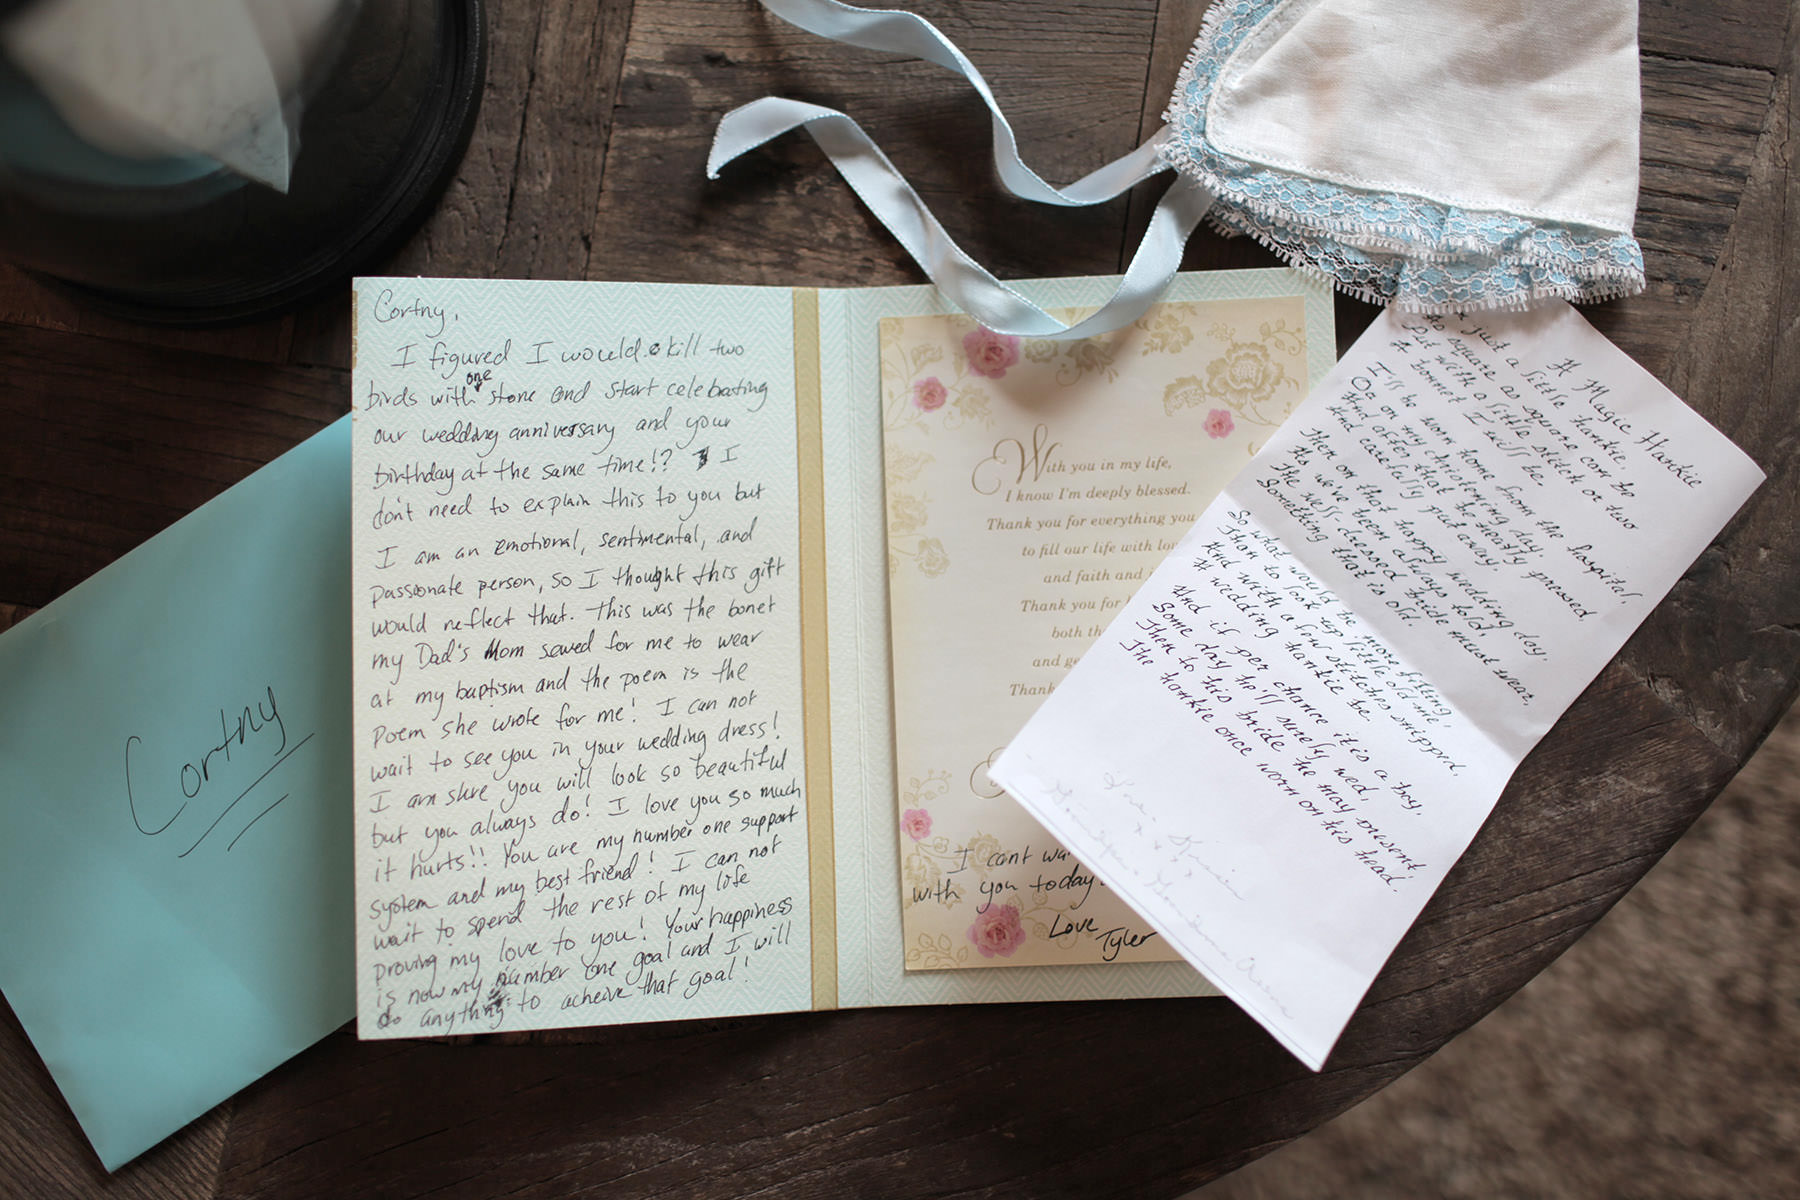 Cortny
Cortny,
I figured I would kill two
birds with one stone and start celebrating
our wedding anniversary and your
birthday at the same time!? I
don't need to explain this to you but
I am an emotional, sentimental, and
passionate person, so I thought this gift
would reflect that. This was the bonet
my Dad's Mom sewed for me to wear
at my baptism and the poem is the
Poem she wrote for me! I can not
wait to see you in your wedding dress!
I am sure you will look so beautiful
but you always do! I love you so much
it hurts!! You are my number one support
system and my best friend! I can not
wait to spend the rest of my life
proving my love to you! Your happiness
is now my number one goal and I will
do anything to acheive that goal!
With you in my life,
I know I'm deeply blessed.
Thank you for everything you
to fill our life with
and faith and
Thank you for
both
and
Thank
I cant
with you today
Love
Tyler
A Magic Hankie
Just a little hankie,
As square as square can be
But with a little stitch or two
A bonnet I will be.
I'll be worn home from the hospital,
Or on my christening day,
And after that be neatly pressed
And carefully put away.
Then on that happy wedding day,
As we've been always told,
The well-dressed bride must wear
Something that is old.
So what would be more fitting,
Than to look up little old me
And with a few stitches snipped,
A wedding hankie be.
And if per chance it is a boy,
Some day he'll surely wed,
Then to his bride he may present
The hankie once worn on his head!